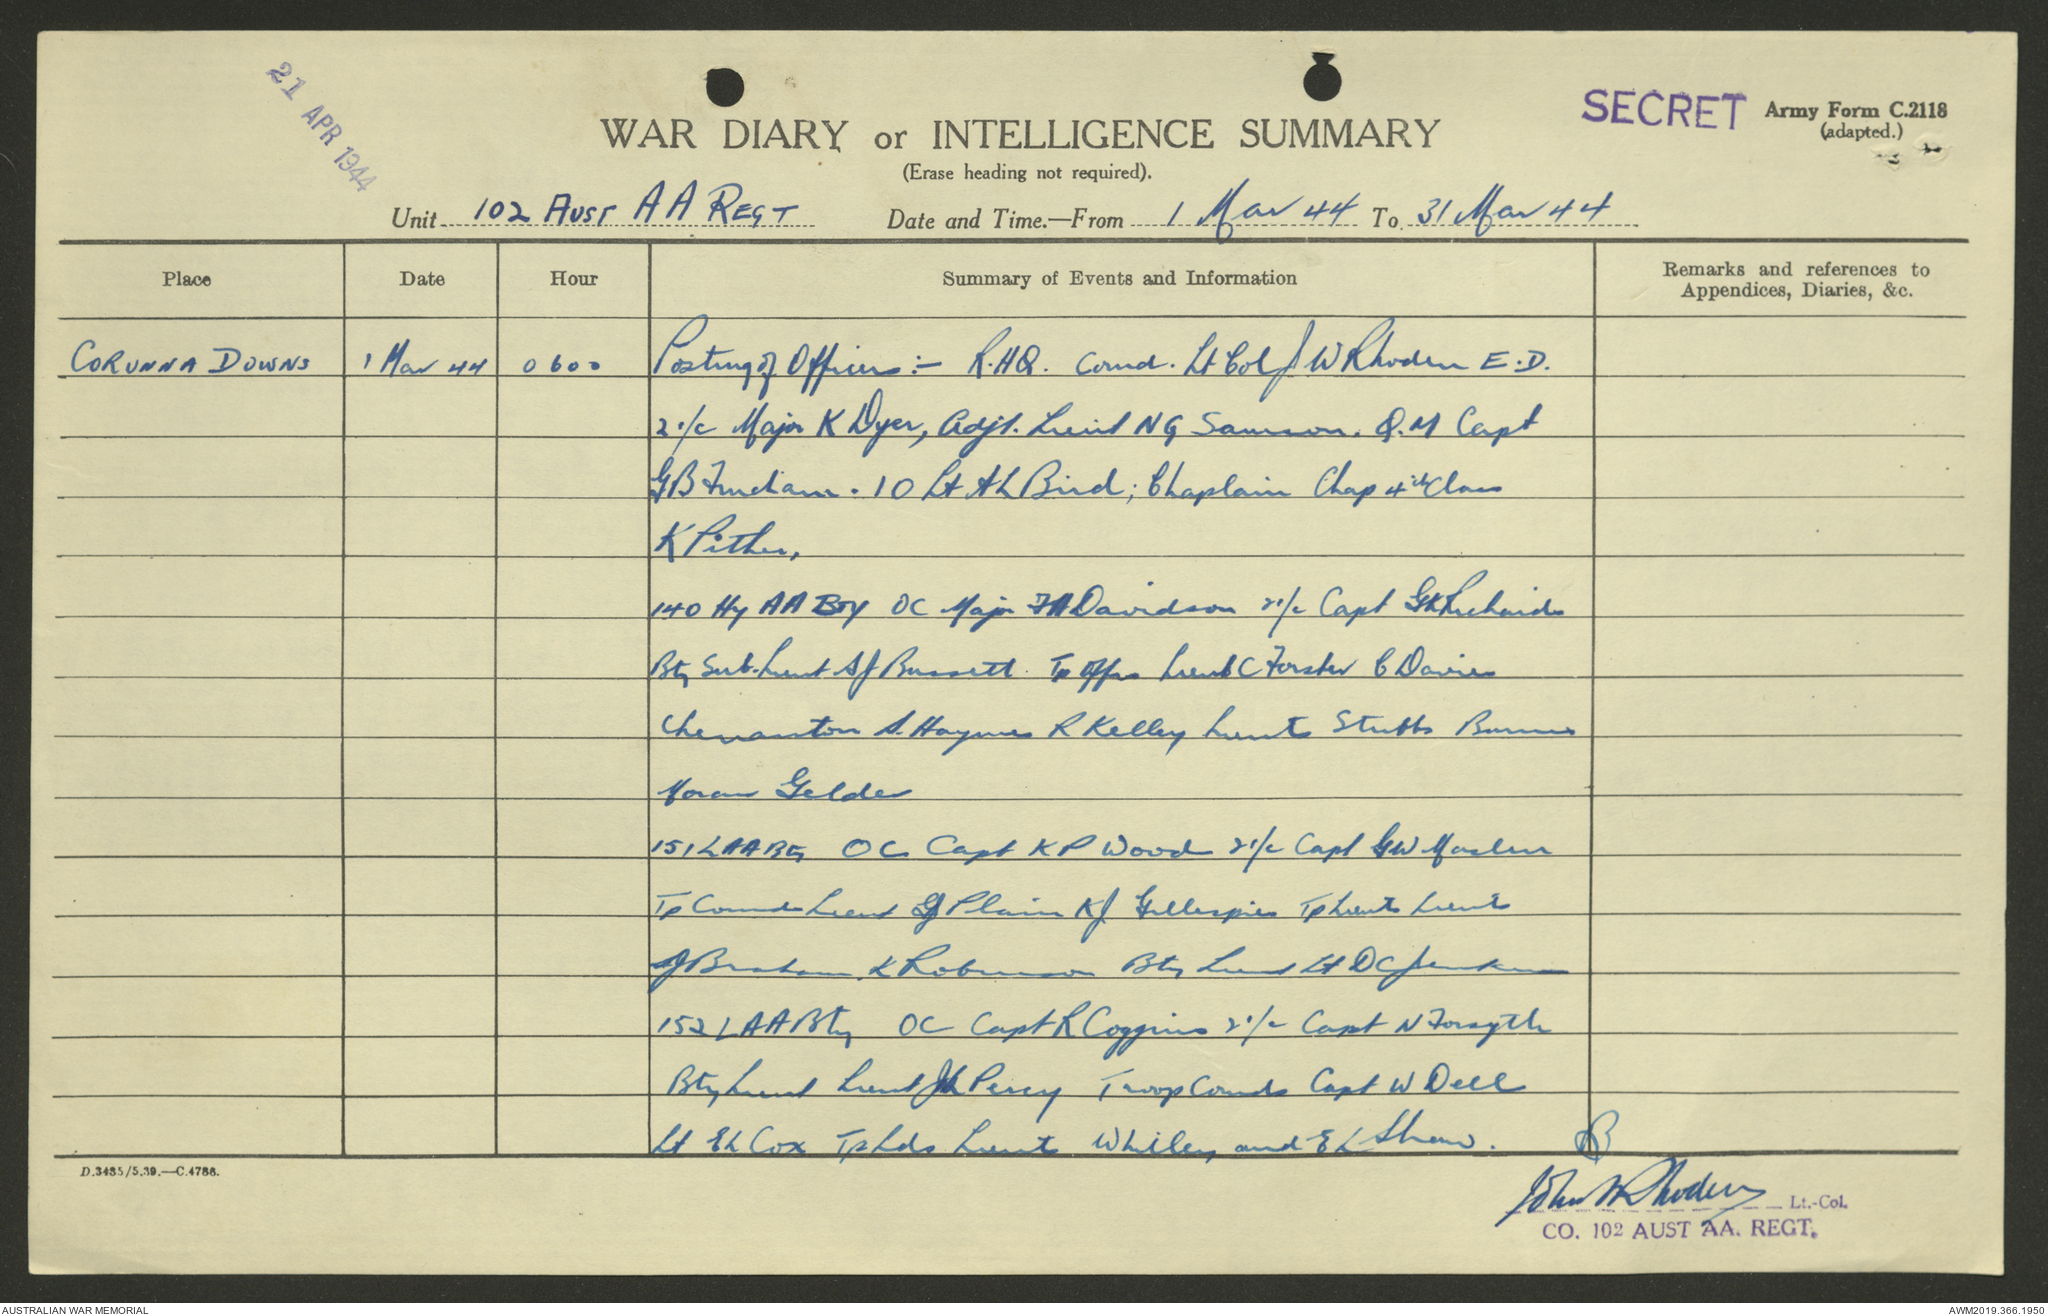 21 APR 1944
SECRET
Army Form C.2118
(adapted.)
WAR DIARY or INTELLIGENCE SUMMARY
(Erase heading not required).
Unit 102 AUST AA REGT Date and Time.—From 1 Mar 44 To 31 Mar 44
Place Date Hour Summary of Events and Information Remarks and references to
Appendices, Diaries, &c.
CORUNNA DOWNS 1 Mar 44 0600 Posting of Officers :- R.H.Q. Comd. Lt Col J W Rhoden E.D.
2 i/c Major K Dyer, Adjt. Lieut N G Samson. Q.M Capt
G B . IO Lt A L Bird; Chaplain Chap 4th Class
K Pither,
140 Hy AA Bty OC Major F A Davidson 2 i/c Capt G K
Bty Sub. Lieut S J Bassett Tp Offrs Lieut C Forster C Davies
S. Haynes R Kelley Lieuts Stubbs
Moran Gelder
151 LAA Bty OC Capt K P Wood 2 i/c Capt G W Maslen
Tp Comds Lieut G J Plain K J Gillespie Tp Lieuts Lieuts
J Braham K Robinson Bty Lieut Lt D C Jenkins
152 LAA Bty OC Capt R Coggins 2 i/c Capt N Forsyth
Bty Lieut Lieut J L Percy Troop Comds Capt W Dell
Lt E L Cox Tp Lds Lieuts Whitley and E L Shaw.
D.3485/5.39.—C.4786.
John W Rhoden Lt.-Col.
CO. 102 AUST AA. REGT.
AUSTRALIAN WAR MEMORIAL
AWM2019.366.1950